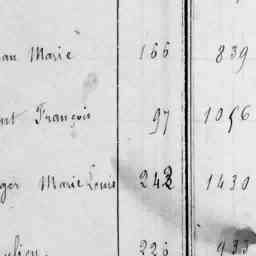 an Marie 166 839
nt François 97 1056
ger Marie Louis 242 1430
ulien. 226 933